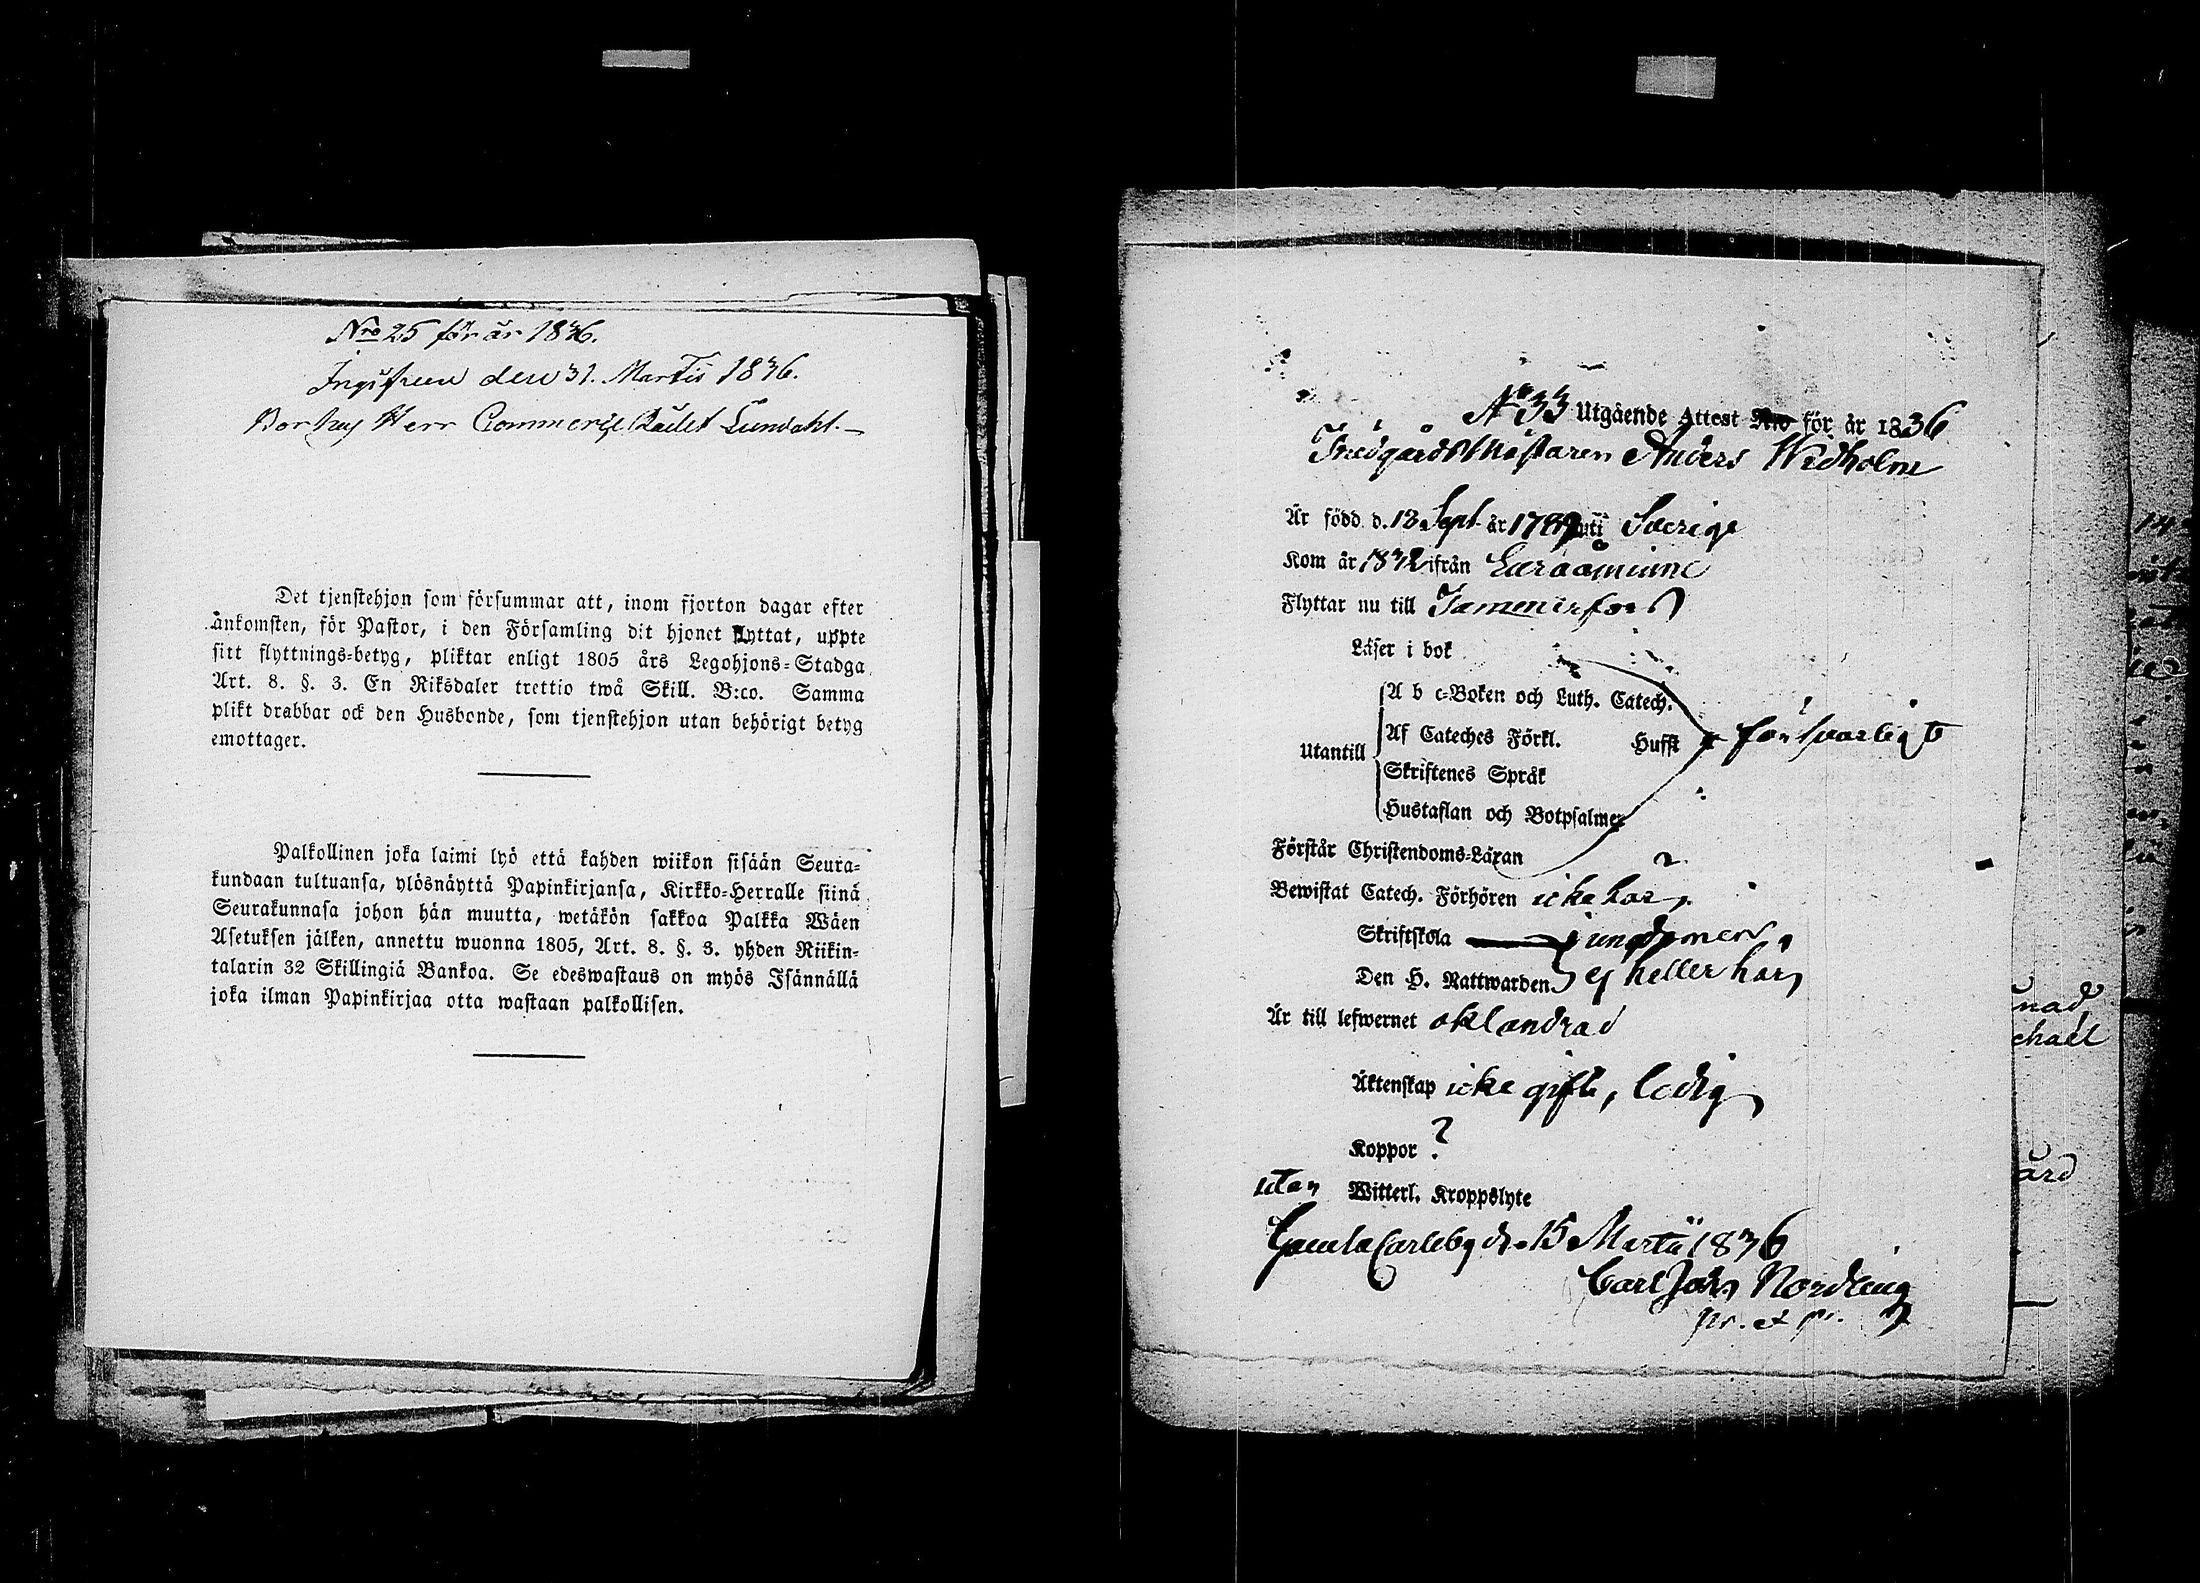 Nro 25 för år 1836.
Ingifven den 31. Martii 1836.
Bor hos Herr Commerce Rådet Lundahl.
Det tjenstehjon som försummar att, inom fjorton dagar efter
ankomsten, för Pastor, i den Församling dit hjonet flyttat, uppte
sitt flyttnings=betyg, pliktar enligt 1805 års Legohjons=Stadga
Art. 8. §. 3. En Riksdaler trettio twå Skill. B:co. Samma
plikt drabbar ock den Husbonde, som tjenstehjon utan behörigt betyg
emottager.
Palkollinen joka laimi lyö että kahden wiikon sisään Seura=
kundaan tultuansa, ylösnäyttä Papinkirjansa, Kirkko=Herralle siinä
Seurakunnasa johon hän muutta, wetäkön sakkoa Palkka Wäen
Asetuksen jälken, annettu wuonna 1805, Art. 8. §. 3. yhden Riikin=
talarin 32 Skillingiä Bankoa. Se edeswastaus on myös Isännällä
joka ilman Papinkirjaa otta wastaan palkollisen.
N° 33 Utgående Attest Nro för år 1836
Trädgårdsmästaren Anders Widholm
Är född d. 18 Sept. år 1789 uti Sverige
Kom år 1832 ifrån
Flyttar nu till Tammerfors
Läser i bok
A b c=Boken och Luth. Catech.
Utantill Af Cateches Förkl. Hufft försvarligt
Skriftenes Språk
Hustaflan och Botpsalmer
Förstår Christendoms=Läran
Bewistat Catech. Förhören icke här
Skriftskola i ungdomen
Den H. Nattwarden ej heller här
Är till lefwernet oklandrad
Äktenskap icke gift, ledig
Koppor ?
utan Witterl. Kroppslyte
Gamla Carleby d. 15 Martii 1836
Carl Joh. Nordling
pr. et pr.
nad
chaël
ård